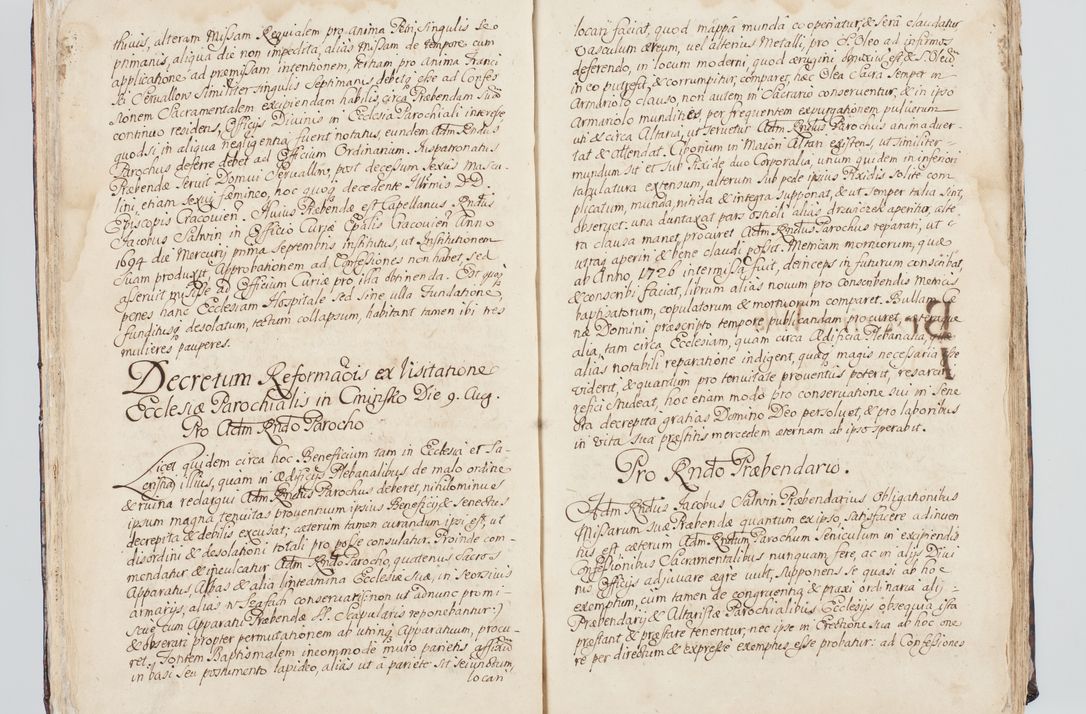 thivis, alteram Missam Requialem pro anima Petri singulis Se-
ptimanis, aliqua die non impedita, alias Missam de tempore cum
applicatione ad præmissam intentionem, tertiam pro anima Franci
sci Cervallon similiter singulis Septimanis debitq esse ad Confes
sionem Sacramentalem excipiendam habilis, circa Præbendam suā
continuo residens, Officijs Divinis in Ecclesia Parochiali interesse
quodsi in aliqua negligentia fuerit notatus, eundem Adm Rndus
Parochus deferre debet ad Officium Ordinarium. Juspatronatus
Præbendæ servit Domui Cervallon, post decessum sexus mascu
lini, etiam sexui fæmineo, hoc quoq decedente Illrmis DD.
Episcopis Cracovien. Huius Præbendæ est Capellanus Rndus
Jacobus Salwin in Officio Curiæ Epalis Cracovien Anno
1694 die Mercurij prima Septembris institutus, ut Institutionem
suam produxit, Approbationem ad Confessiones non habet, sed
asseruit misisse ad Officium Curiæ pro illa obtinenda. Est quoq
penes hanc Ecclesiam Hospitale sed sine ulla Fundatione,
funditus desolatum, tectum collapsum, habitant tamen ibi tres
mulieres pauperes.
Decretum Reformaois ex Visitatione
Ecclesiæ Parochialis in Die 9. Aug.
Pro Adm Rndo Parocho
Licet quidem circa hoc Beneficium tam in Ecclesia et Sa-
cristia illius, quam in ædificijs Plebanalibus de malo ordine
& ruina redargui Adm Rndus Parochus deberet, nihilominus
ipsum magna tenuitas proventuum ipsius Beneficij & Senectus
decrepita & debilis excusat; cæterum tamen curandum ipsi est, ut
disordini & desolationi totali pro posse consulatur. Proinde com-
mendatur & inculcatur Adm Rndo Parocho, quatenus Sacros
Apparatus, Albas & alia linteamina Ecclesiæ suæ, in Seorsivis
armarijs, alias w Szafach conservari (non ut adhunc promi-
scue cum Apparatu Præbendæ SS. Scapularis reponebantur:)
& observari propter permutationem ab utrinq Apparatuum, procu-
ret. Fontem Baptismalem incommode muro parietis affixū
in basi seu postumento lapideo, alias ut a pariete sit seiunctum,
locari
locari faciat, quod mappâ munda cooperiatur, & serâ claudatur
Vasculum æreum, vel alterius Metalli, pro S. Oleo ad infirmos
deferendo, in locum moderni, quod ærugini obnoxius est, & S. Oleū
in eo putrescit, & corrumpitur, comparet, hæc Olea Sacra semper in
Armariolo clauso, non autem in Sacrario conserventur, & in ipso
Armariolo mundities, per frequentem expurgationem pulverum
uti & circa Altaria, ut servetur Adm Rndus Parochus animadver-
tat & attendat. Ciborium in Maiori Altari existens, ut similiter
mundum sit et sub Pixide duo Corporalia, unum quidem in inferiori
tabulatura extensum, alterum sub pede ipsius Pixidis solite com
plicatum, munda, nitida & integra supponat, & ut semper talia sint,
observet: una duntaxat pars ostioli alias drzwiczek aperitur, alte-
ra clausa manet, procuret Adm Rndus Parochus reparari, ut
utraq aperiri & bene claudi possit. Metricam mortuorum, quæ
ab Anno 1726 intermissa fuit, deinceps in futurum conscribat,
& conscribi faciat, librum alias novum pro Conscribendis Metricis
baptisatorum, copulatorum & mortuorum comparet. Bullam Cœ
næ Domini præscripto tempore publicandam procuret, cæteraque
alia, tam circa Ecclesiam, quam circa Ædificia Plebanalia, quæ
alias notabili reparatione indigent, quæq magis necessaria esse
viderit, & quantum pro tenuitate proventus poterit, resarciri
refici studeat, hoc etiam modo pro conservatione sui in Sene
cta decrepita gratias Domino Deo persolvet, & pro laboribus
in vita sua præstitis mercedem æternam ab ipso sperabit.
Pro Rndo Præbendario.
Adm Rndus Jacobus Salwin Præbendarius Obligationibus
Missarum suæ Præbendæ quantum ex ipso, satisfacere adinven
tus est cæterum Adm Rndum Parochum Seniculum in excipiendis
Confessionibus Sacramentalibus nunquam fere, ac in alijs Divi
nis Officijs adjuvare ægre vult, supponens se quasi ab hoc
exemptum, cum tamen de congruentia & praxi ordinaria alij
Præbendarij & Altaristæ Parochialibus Ecclesijs obsequia ista
præstant & præstare tenentur, nec ipse in Erectione sua ab hoc one
re per directum & expresse exemptus esse probatur: ad Confessiones